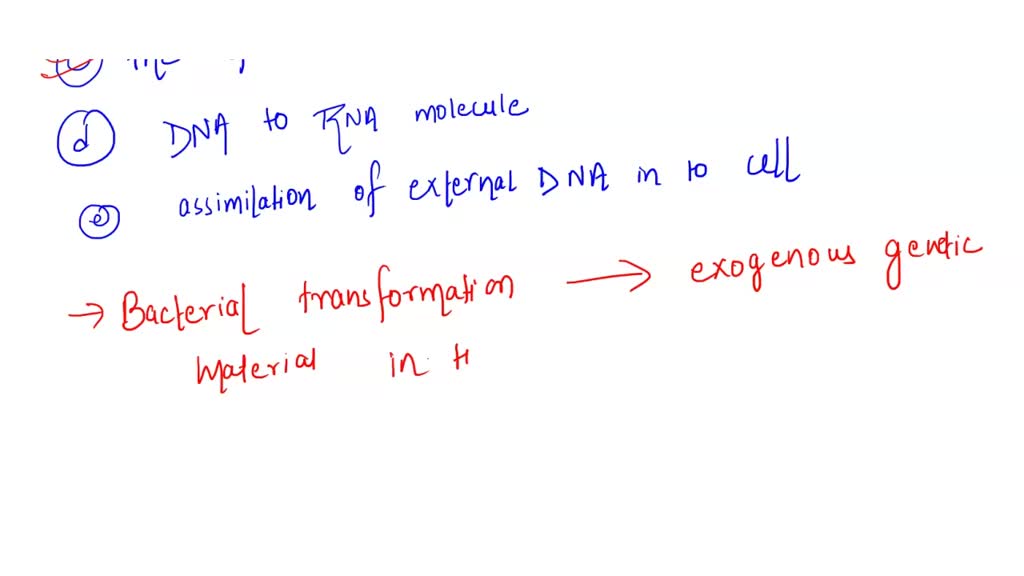 d DNA to RNA molecule
e assimilation of external DNA in to cell
→ Bacterial transformation → exogenous genetic
material in t